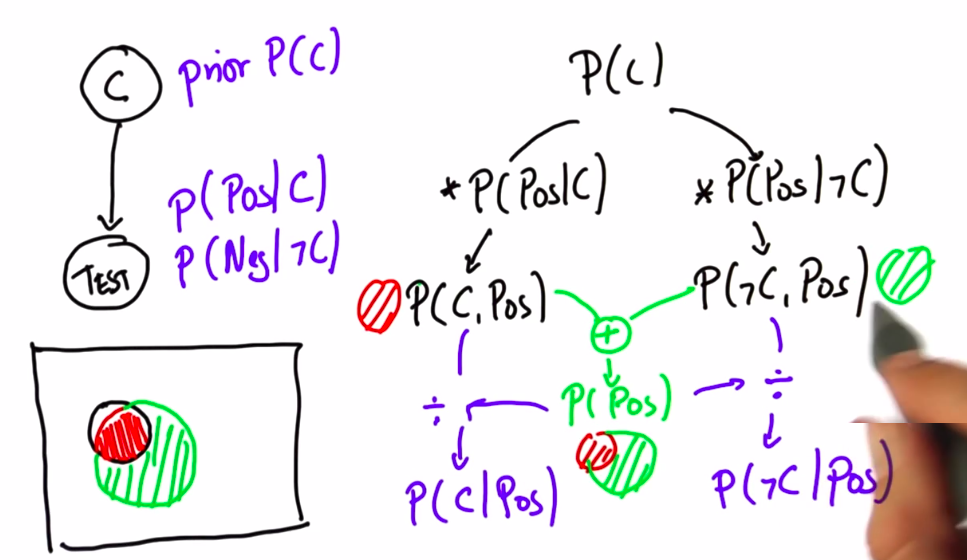 C
prior P(C)
P(Pos|C)
P(Neg|¬C)
TEST
P(C)
* P(Pos|C)
* P(Pos|¬C)
P(C,Pos)
P(¬C,Pos)
+
P(Pos)
÷
÷
P(C|Pos)
P(¬C|Pos)